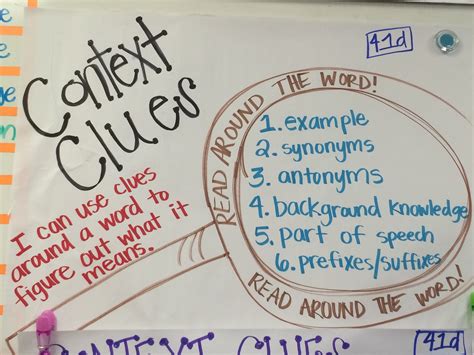 41d
Context
Clues
I can use clues
around a word to
figure out what it
means.
READ AROUND THE WORD!
1. example
2. synonyms
3. antonyms
4. background knowledge
5. part of speech
6. prefixes/suffixes
READ AROUND THE WORD!
CONTEXT CLUES
41d